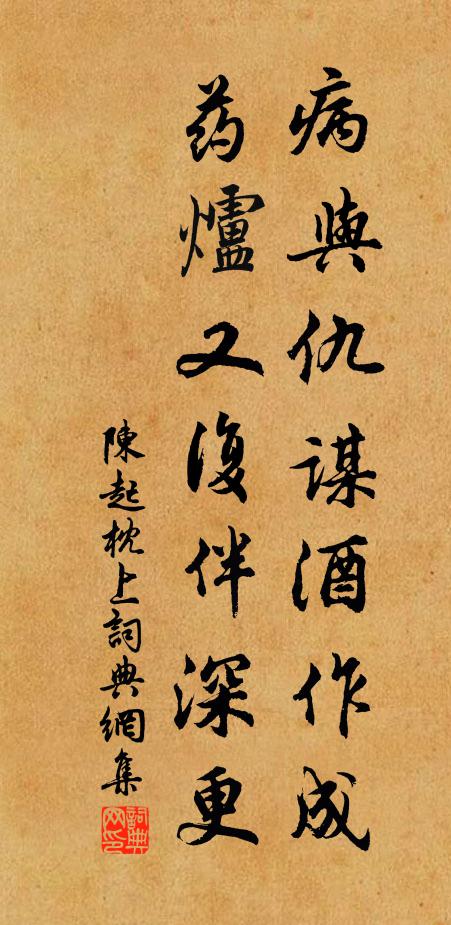 病與仇謀酒作成
药爐又復伴深更
陳起枕上詞典網集
詞典网印